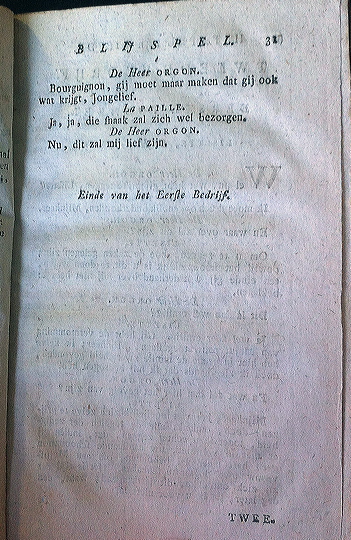 BLIJSPEL. 31
De Heer ORGON.
Bourguignon, gij moet maar maken dat gij ook
wat krijgt, Jongelief.
La PAILLE.
Ja, ja, die snaak zal zich wel bezorgen.
De Heer ORGON.
Nu, dit zal mij lief zijn.
Einde van het Eerste Bedrijf.
TWEE.